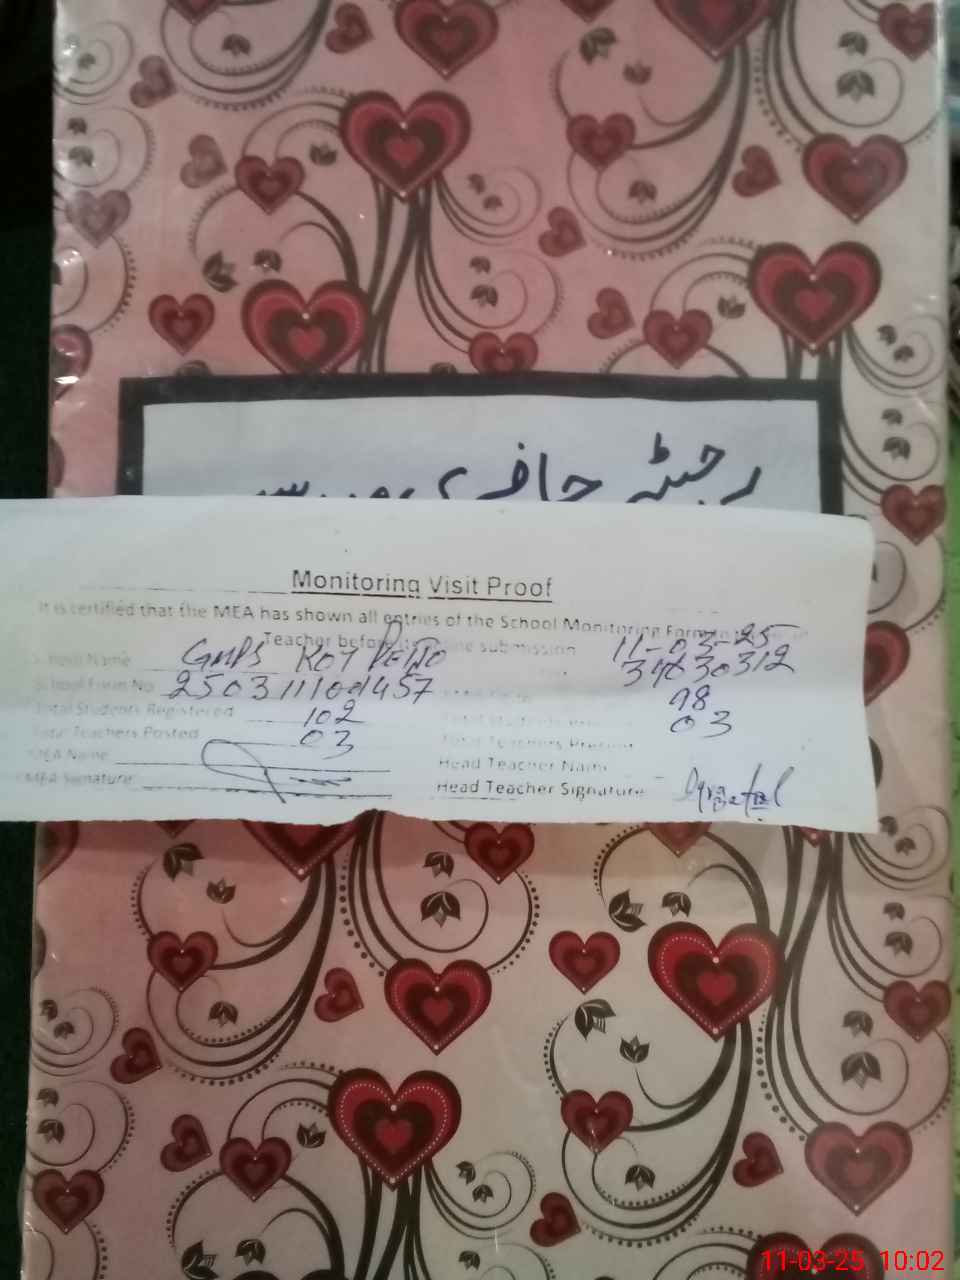 رجسٹر حاضری مدرسین
Monitoring Visit Proof
It is certified that the MEA has shown all entries of the School Monitoring Form to the
Teacher before its online submission 11-03-25
School Name GMPS KOT
School Form No 25031111001457
Total Students Registered 102 98
Total Teachers Posted 03 Total Teachers Present 03
MEA Name Head Teacher Name
MEA Signature: Head Teacher Signature
11-03-25 10:02